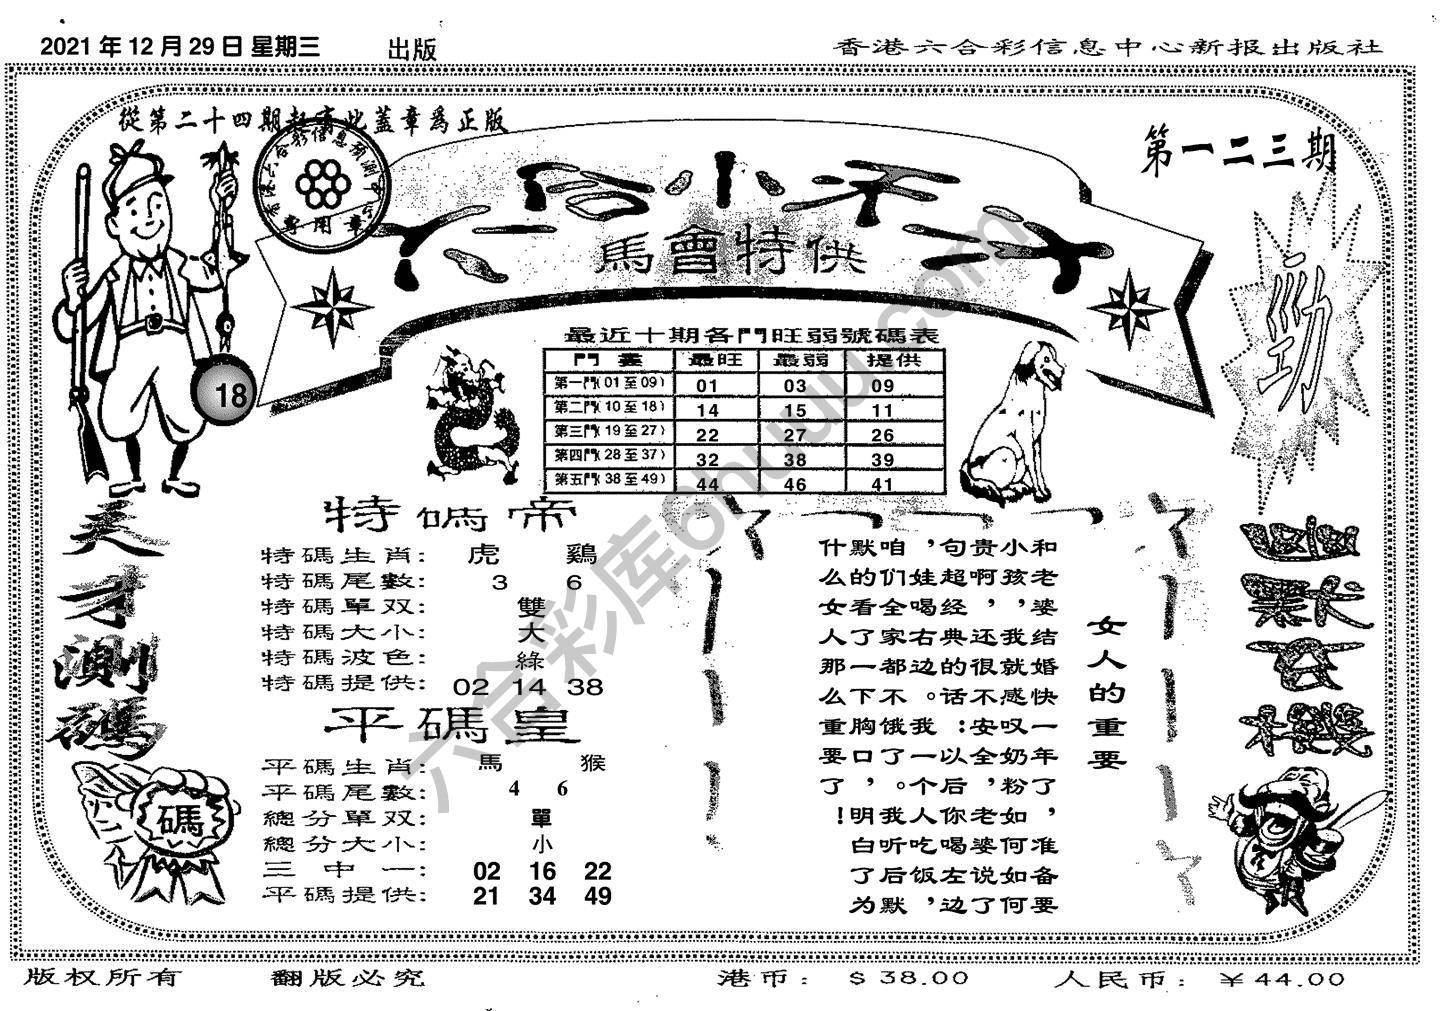 2021年12月29日 星期三 出版
香港六合彩信息中心新报出版社
從第二十四期起有此蓋章為正版
第一二三期
專用章
馬會特供
勁
18
最近十期各門旺弱號碼表
門 最旺 最弱 提供
第一門(01至09) 01 03 09
第二門(10至18) 14 15 11
第三門(19至27) 22 27 26
第四門(28至37) 32 38 39
第五門(38至49) 44 46 41
天才測碼
碼
特碼帝
特碼生肖: 虎 鷄
特碼尾數: 3 6
特碼單双: 雙
特碼大小: 大
特碼波色: 綠
特碼提供: 02 14 38
平碼皇
平碼生肖: 馬 猴
平碼尾數: 4 6
總分單双: 單
總分大小: 小
三中一: 02 16 22
平碼提供: 21 34 49
女人的重要
和老婆结婚快一年了，准备要
小孩，我就感叹奶粉如何如何
贵啊，还很不安全，老婆说了
句超经典的话：以后你喝左边
，娃喝右边。我一个人吃饭，
咱们全家都不饿了。我听后默
默的看了一下胸口，明白了为
什么女人那么重要了！
版权所有 翻版必究 港币: $38.00 人民币: ¥44.00
六合彩库6huuu.com